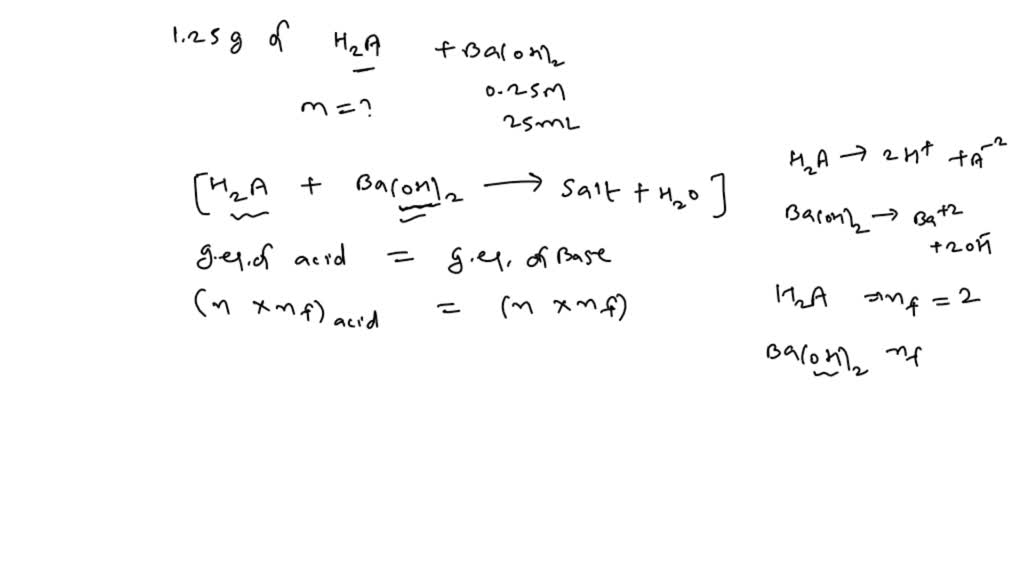 1.25 g of H2A + Ba(OH)2
m = ? 0.25M
25mL
[H2A + Ba(OH)2 → Salt + H2O]
g.eq. of acid = g.eq. of Base
(n × nf) acid = (n × nf)
H2A → 2H+ + A-2
Ba(OH)2 → Ba+2
+ 2OH-
H2A ⇒ nf = 2
Ba(OH)2 nf